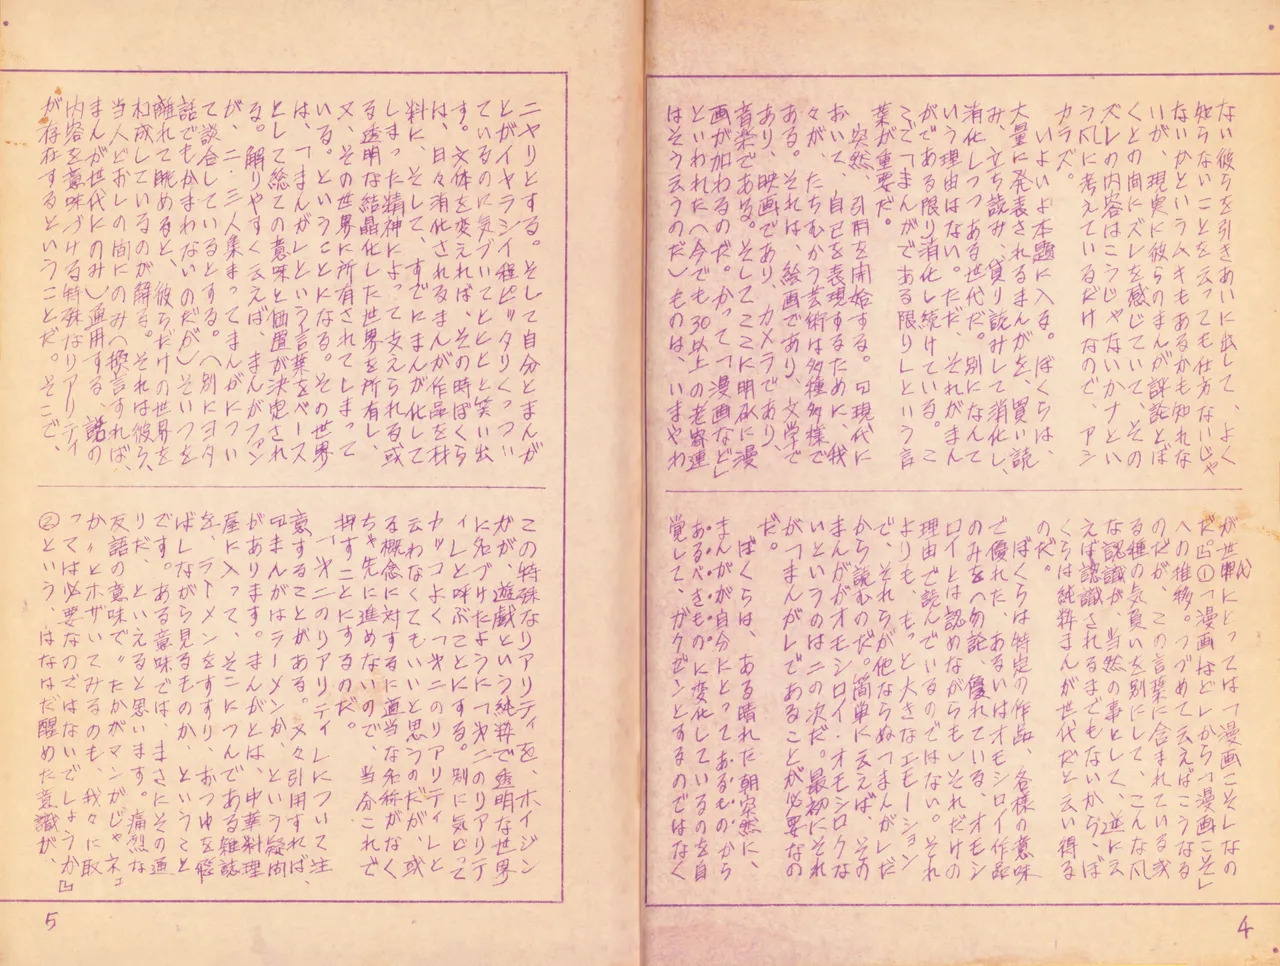 ない彼らを引きあいに出して、よく
知らないことを云っても仕方ないじゃ
ないかというムキもあるかも知れな
いが、現実に彼らのまんが評論とぼ
くとの間にズレを感じていて、その
ズレの内容はこうじゃないかナとい
う風に考えているだけなので、アシ
カラズ。
いよいよ本題に入る。ぼくらは、
大量に発表されるまんがを、買い読
み、立ち読み、貸り読みして消化し、
消化しつつある世代だ。別になんて
いう理由はない。ただ、それがまん
がである限り消化し続けている。こ
こで「まんがである限り」という言
葉が重要だ。
突然、引用を開始する。『現代に
おいて、自己を表現するために、我
々が、たちむかう芸術は多種多様で
ある。それは、絵画であり、文学で
あり、映画であり、カメラであり、
音楽である。そしてここに明確に漫
画が加わるのだ。かって「漫画など」
といわれた(今でも30以上の老寄連
はそう云うのだ)ものは、いまやわ
が世代にとっては「漫画こそ」なの
だ。』①「漫画はど」から「漫画こそ」
への推移。つづめて云えばこうなる
のだが、この言葉に含まれている或
る種の気負いを別にして、こんな風
な認識が、当然の事として、逆に云
えば認識されるまでもないから、ぼ
くらは純粋まんが世代だと云い得る
のだ。
ぼくらは特定の作品、各様の意味
で優れた、あるいはオモシロイ作品
のみを(勿論、優れている、オモシ
ロイとは認めながらも)それだけの
理由で読んでいるのではない。それ
よりも、もっと大きなエモーション
で、それらが他ならぬ「まんが」だ
から読むのだ。簡単に云えば、その
まんががオモシロイ・オモシロクな
いというのは二の次だ。最初にそれ
が「まんが」であることが必要なの
だ。
ぼくらは、ある晴れた朝突然に、
まんがが自分にとってあるものから
あるべきものに変化しているのを自
覚して、ガクゼンとするのではなく
ニヤリとする。そして自分とまんが
とがイヤラシイ程ピッタリくっつい
ているのに気づいてヒヒヒと笑い出
す。文体を変えれば、その時ぼくら
は、日々消化されるまんが作品を材
料に、そして、すでにまんが化して
しまった精神によって支えられる或
る透明な結晶化した世界を所有し、
又、その世界に所有されてしまって
いる。ということになる。その世界
は、「まんが」という言葉をベース
として総ての意味と価置が決定され
る。解りやすく云えば、まんがファン
が、二・三人集まってまんがについ
て談合しているとする。(別にヨタ
話でもかまわないのだが)そいつを
離れて眺めると、彼らだけの世界を
構成しているのが解る。それは彼ら、
当人どおしの間にのみ(換言すれば、
まんが世代にのみ)通用する、話の
内容を意味づける特殊なリアリティ
が存在するということだ。そこで、
この特殊なリアリティを、ホイジン
ガが、遊戯という純粋で透明な世界
に名づけたように「第二のリアリテ
ィ」と呼ぶことにする。別に気どって
カッコよく「第二のリアリティ」と
云わなくてもいいと思うのだが、或
る概念に対するに適当な名称がなく
ちゃ先に進めないので、当分これで
押すことにするのだ。
「第二のリアリティ」について注
意することがある。又々引用すれば、
『まんがはラーメンか、という疑問
があります。まんがとは、中華料理
屋に入って、そこにつんである雑誌
を、ラーメンをすすり、おつゆを飛
ばしながら見るものか、ということ
です。ある意味では、まさにその通
りだ、といえると思います。痛烈な
反語の意味で〝たかがマンガじゃネェ
か〟とホザいてみるのも、我々に取
っては必要なのではないでしょうか』
②という、はなはだ醒めた意識が、
4
5